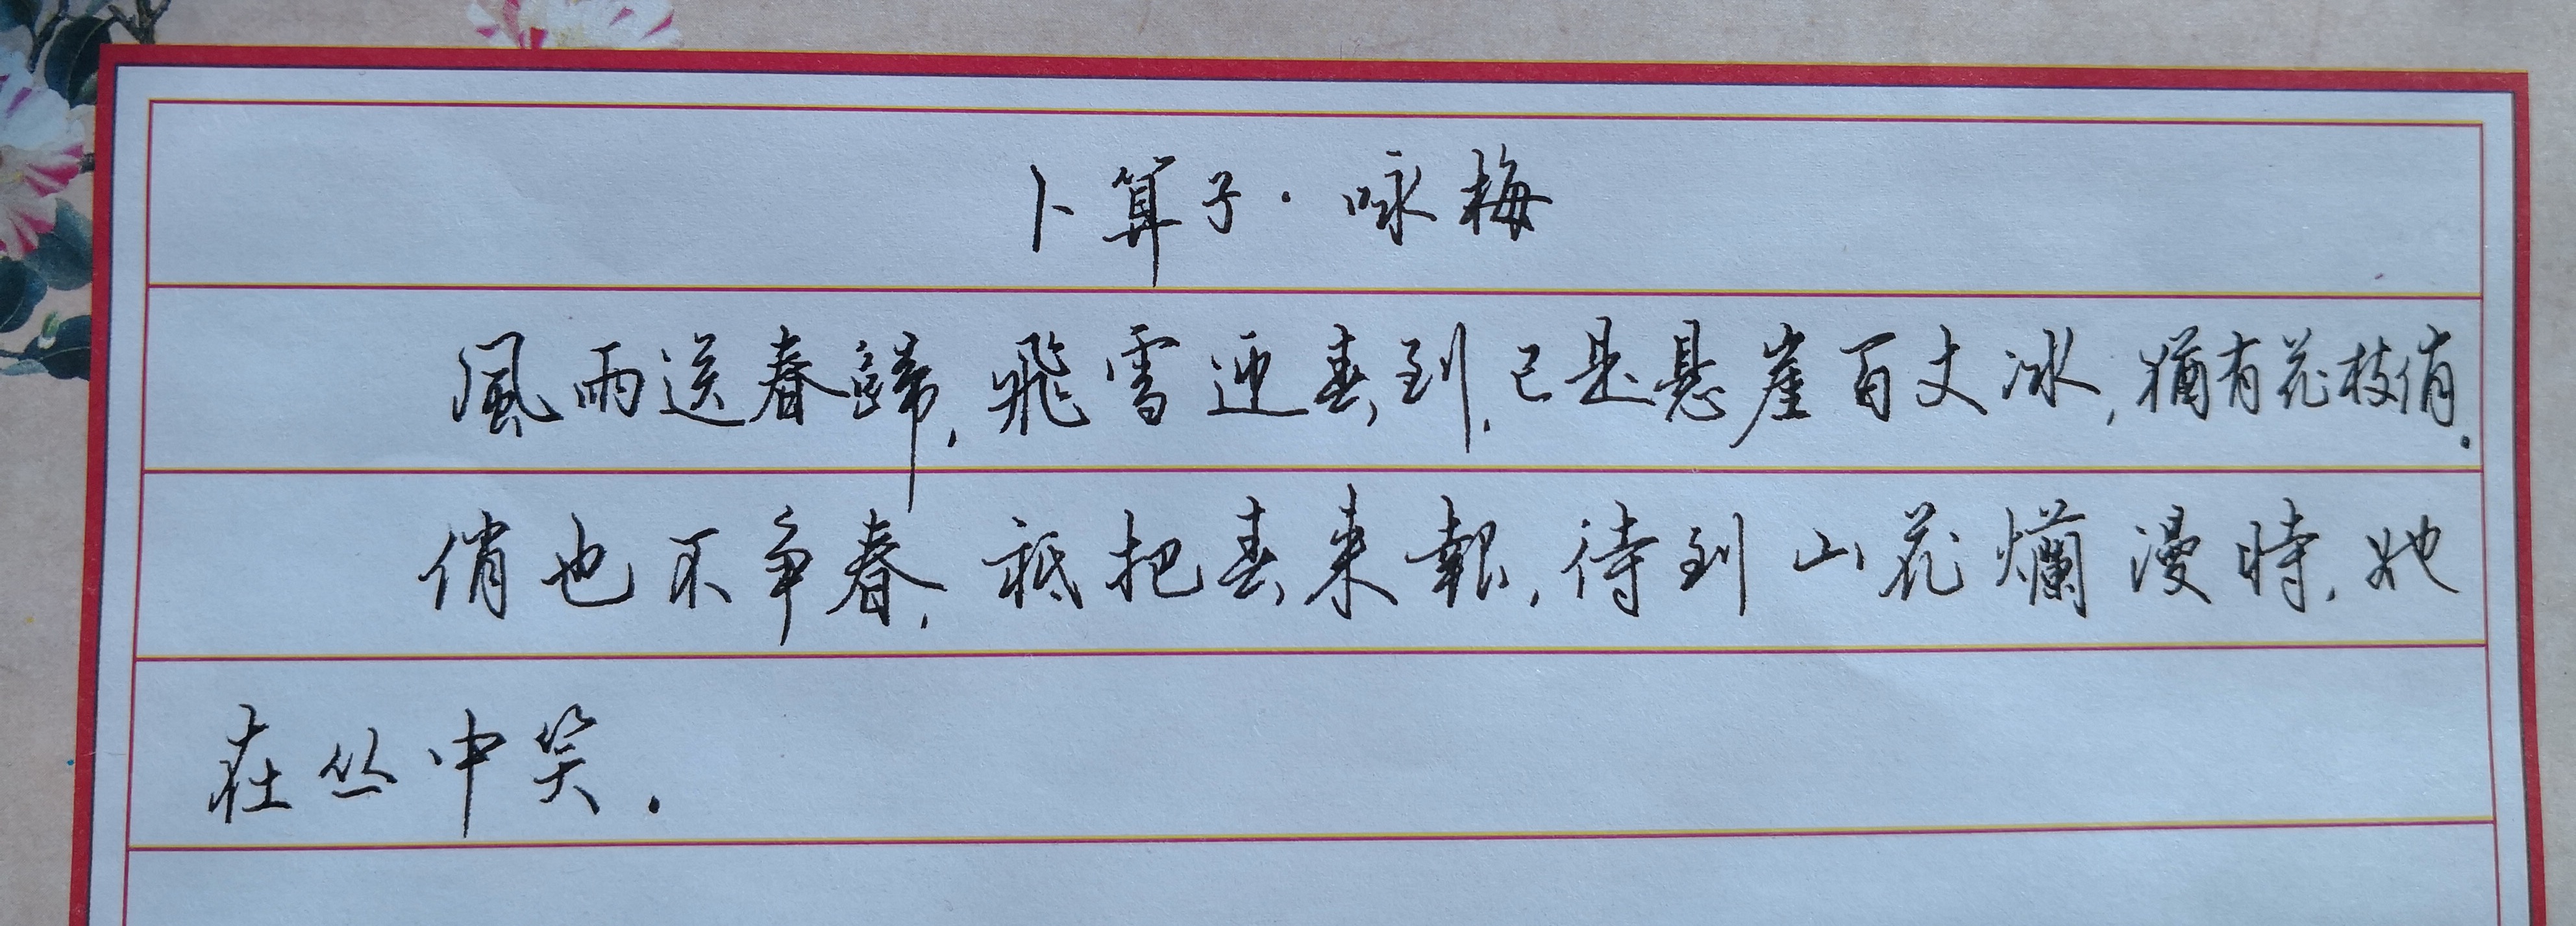 卜算子·咏梅
風雨送春歸,飛雪迎春到,已是懸崖百丈冰,猶有花枝俏.
俏也不爭春,祇把春來報,待到山花爛漫時,她
在丛中笑.